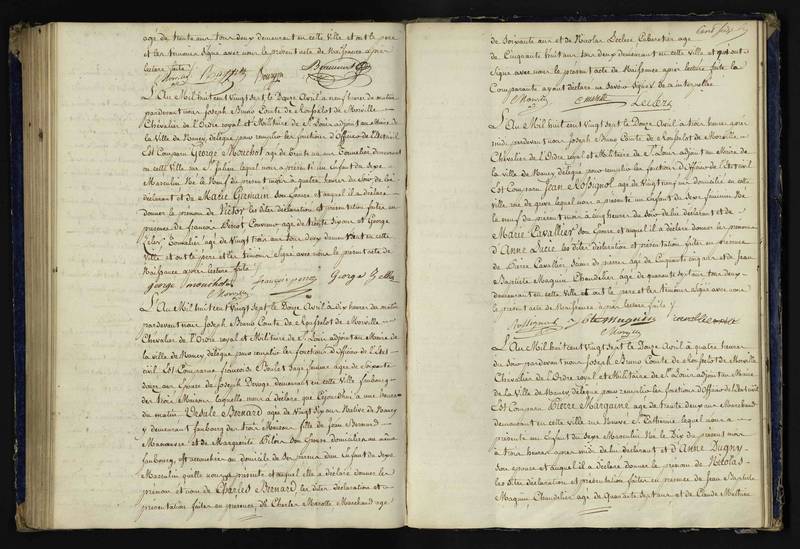 age de trente ans tous deux demeurant en cette Ville et ont le pere
et les temoins Signé avec nous le present acte de Naissance après
lecture faite
L'An Mil huit cent Vingt sept le Douze Avril a neuf heures du matin
pardevant nous Joseph Bruno Comte de Ronfselot de Morville
Chevalier de l'Ordre royal et Militaire de St Louis adjoint au Maire de
la Ville de Nancy, délégué pour remplir les fonctions d'Officier de l'Etat civil
Est Comparu George Mouchot agé de trente un ans Tonnelier demeurant
en cette Ville rue St Julien lequel nous a présenté un Enfant du Sexe
Masculin Né le Neuf du présent mois à quatre heures du Soir de lui
déclarant et de Marie Germain Son Epouse et auquel il a déclaré
donner le prenom de Victor les dites déclaration et présentation faites en
presence de François agé de trente Six ans et George
agé de Vingt trois ans tous deux demeurant en cette
Ville et ont le pere et les temoins Signé avec nous le present acte de
Naissance après lecture faite
george mouchot
L'An Mil huit cent Vingt sept le Douze Avril à dix heures du matin
pardevant nous Joseph Bruno Comte de Ronfselot de Morville
Chevalier de l'Ordre royal et Militaire de St Louis adjoint au Maire de
la ville de Nancy délégué pour remplir les fonctions d'Officier de l'Etat
civil Est Comparue françoise Sage femme agée de Soixante
douze ans Epouse de Joseph demeurant en cette Ville faubourg
des trois Maisons laquelle nous a déclaré que
du matin Ursule Bernard agée de Vingt Six ans Native de Nancy
y demeurant faubourg des trois Maisons fille de Jean Bernard
Manoeuvre et de Marguerite Son Epouse domiciliés au même
faubourg, est accouchée au domicile de Ses pere et mere d'un Enfant du Sexe
Masculin qu'elle nous présente et auquel elle a déclaré donner les
prénom et nom de Charles Bernard, les dites déclaration et
présentation faites en presence de Charles Marotte Marchand agé
de Soixante ans et de Nicolas Leclerc Cabaretier agé
de Cinquante huit ans tous deux demeurant en cette ville et qui ont
Signé avec nous le present acte de Naissance après lecture faite la
Comparante ayant déclaré ne Savoir Signer de ce interpellée
Leclerc
L'An Mil huit cent Vingt sept le Douze Avril à trois heures apres
midi pardevant nous Joseph Bruno Comte de Ronfselot de Morville
Chevalier de l'Ordre royal et Militaire de St Louis adjoint au Maire de
la ville de Nancy délégué pour remplir les fonctions d'Officier de l'Etat civil
Est Comparu Jean Rossignol agé de Vingt neuf ans domicilié en cette
ville rue de grève lequel nous a présenté un Enfant du Sexe feminin Né
le neuf du présent mois à cinq heures du Soir de lui déclarant et de
Marie Cavallier Son Epouse et auquel il a déclaré donner les prenoms
d'Anne Lucie les dites déclaration et présentation faites en presence
de Pierre Cavallier de pierres agé de Cinquante cinq ans et de Jean
Baptiste Maguin Chandelier agé de quarante sept ans tous deux
demeurant en cette Ville et ont le pere et les temoins Signé avec nous
le present acte de Naissance après lecture faite
L'An Mil huit cent Vingt sept le Douze Avril à quatre heures
du Soir pardevant nous Joseph Bruno Comte de Ronfselot de Morville
Chevalier de l'Ordre royal et Militaire de St Louis adjoint au Maire
de la Ville de Nancy délégué pour remplir les fonctions d'Officier de l'Etat civil
Est Comparu Pierre Margaine agé de trente deux ans Marchand
demeurant en cette ville rue Neuve Ste Catherine lequel nous a
présenté un Enfant du Sexe Masculin Né le Dix du present mois
à trois heures après midi de lui déclarant et d'Anne Dugny
Son épouse et auquel il a déclaré donner le prenom de Nicolas
les dites déclaration et présentation faites en presence de Jean Baptiste
Maguin Chandelier agé de Quarante Sept ans et de Claude Mathieu